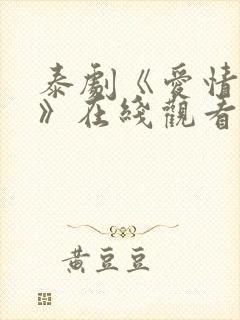 泰劇《愛情
》在綫觀看
黃豆豆